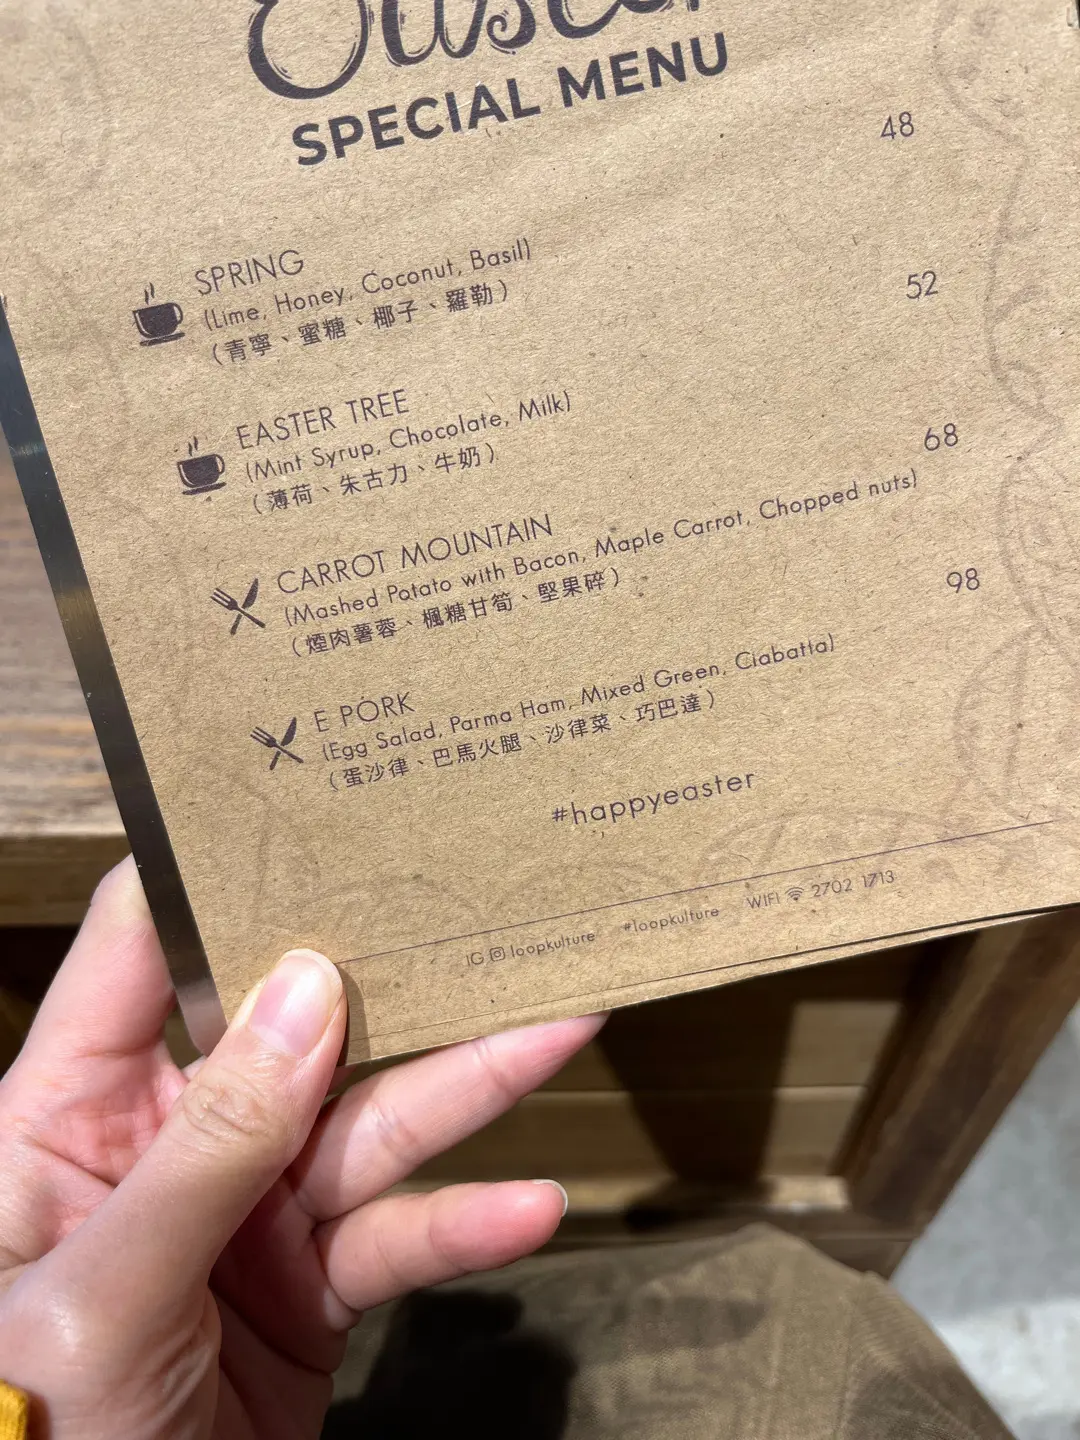 Easter
SPECIAL MENU
SPRING 48
(Lime, Honey, Coconut, Basil)
（青寧、蜜糖、椰子、羅勒）
EASTER TREE 52
(Mint Syrup, Chocolate, Milk)
（薄荷、朱古力、牛奶）
CARROT MOUNTAIN 68
(Mashed Potato with Bacon, Maple Carrot, Chopped nuts)
（煙肉薯蓉、楓糖甘筍、堅果碎）
E PORK 98
(Egg Salad, Parma Ham, Mixed Green, Ciabatta)
（蛋沙律、巴馬火腿、沙律菜、巧巴達）
#happyeaster
IG loopkulture #loopkulture WIFI 2702 1713